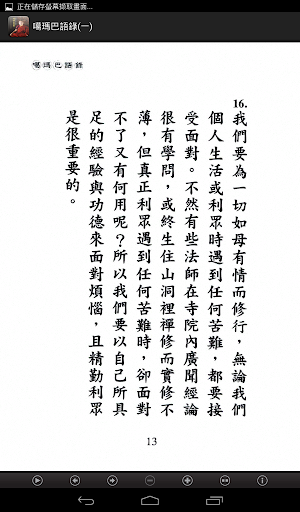 正在儲存螢幕擷取畫面...
噶瑪巴語錄(一)
噶瑪巴語錄
16.我們要為一切如母有情而修行，無論我們
個人生活或利眾時遇到任何苦難，都要接
受面對。不然有些法師在寺院內廣聞經論
很有學問，或終生住山洞裡禪修而實修不
薄，但真正利眾遇到任何苦難時，卻面對
不了又有何用呢？所以我們要以自己所具
足的經驗與功德來面對煩惱，且精勤利眾
是很重要的。
13